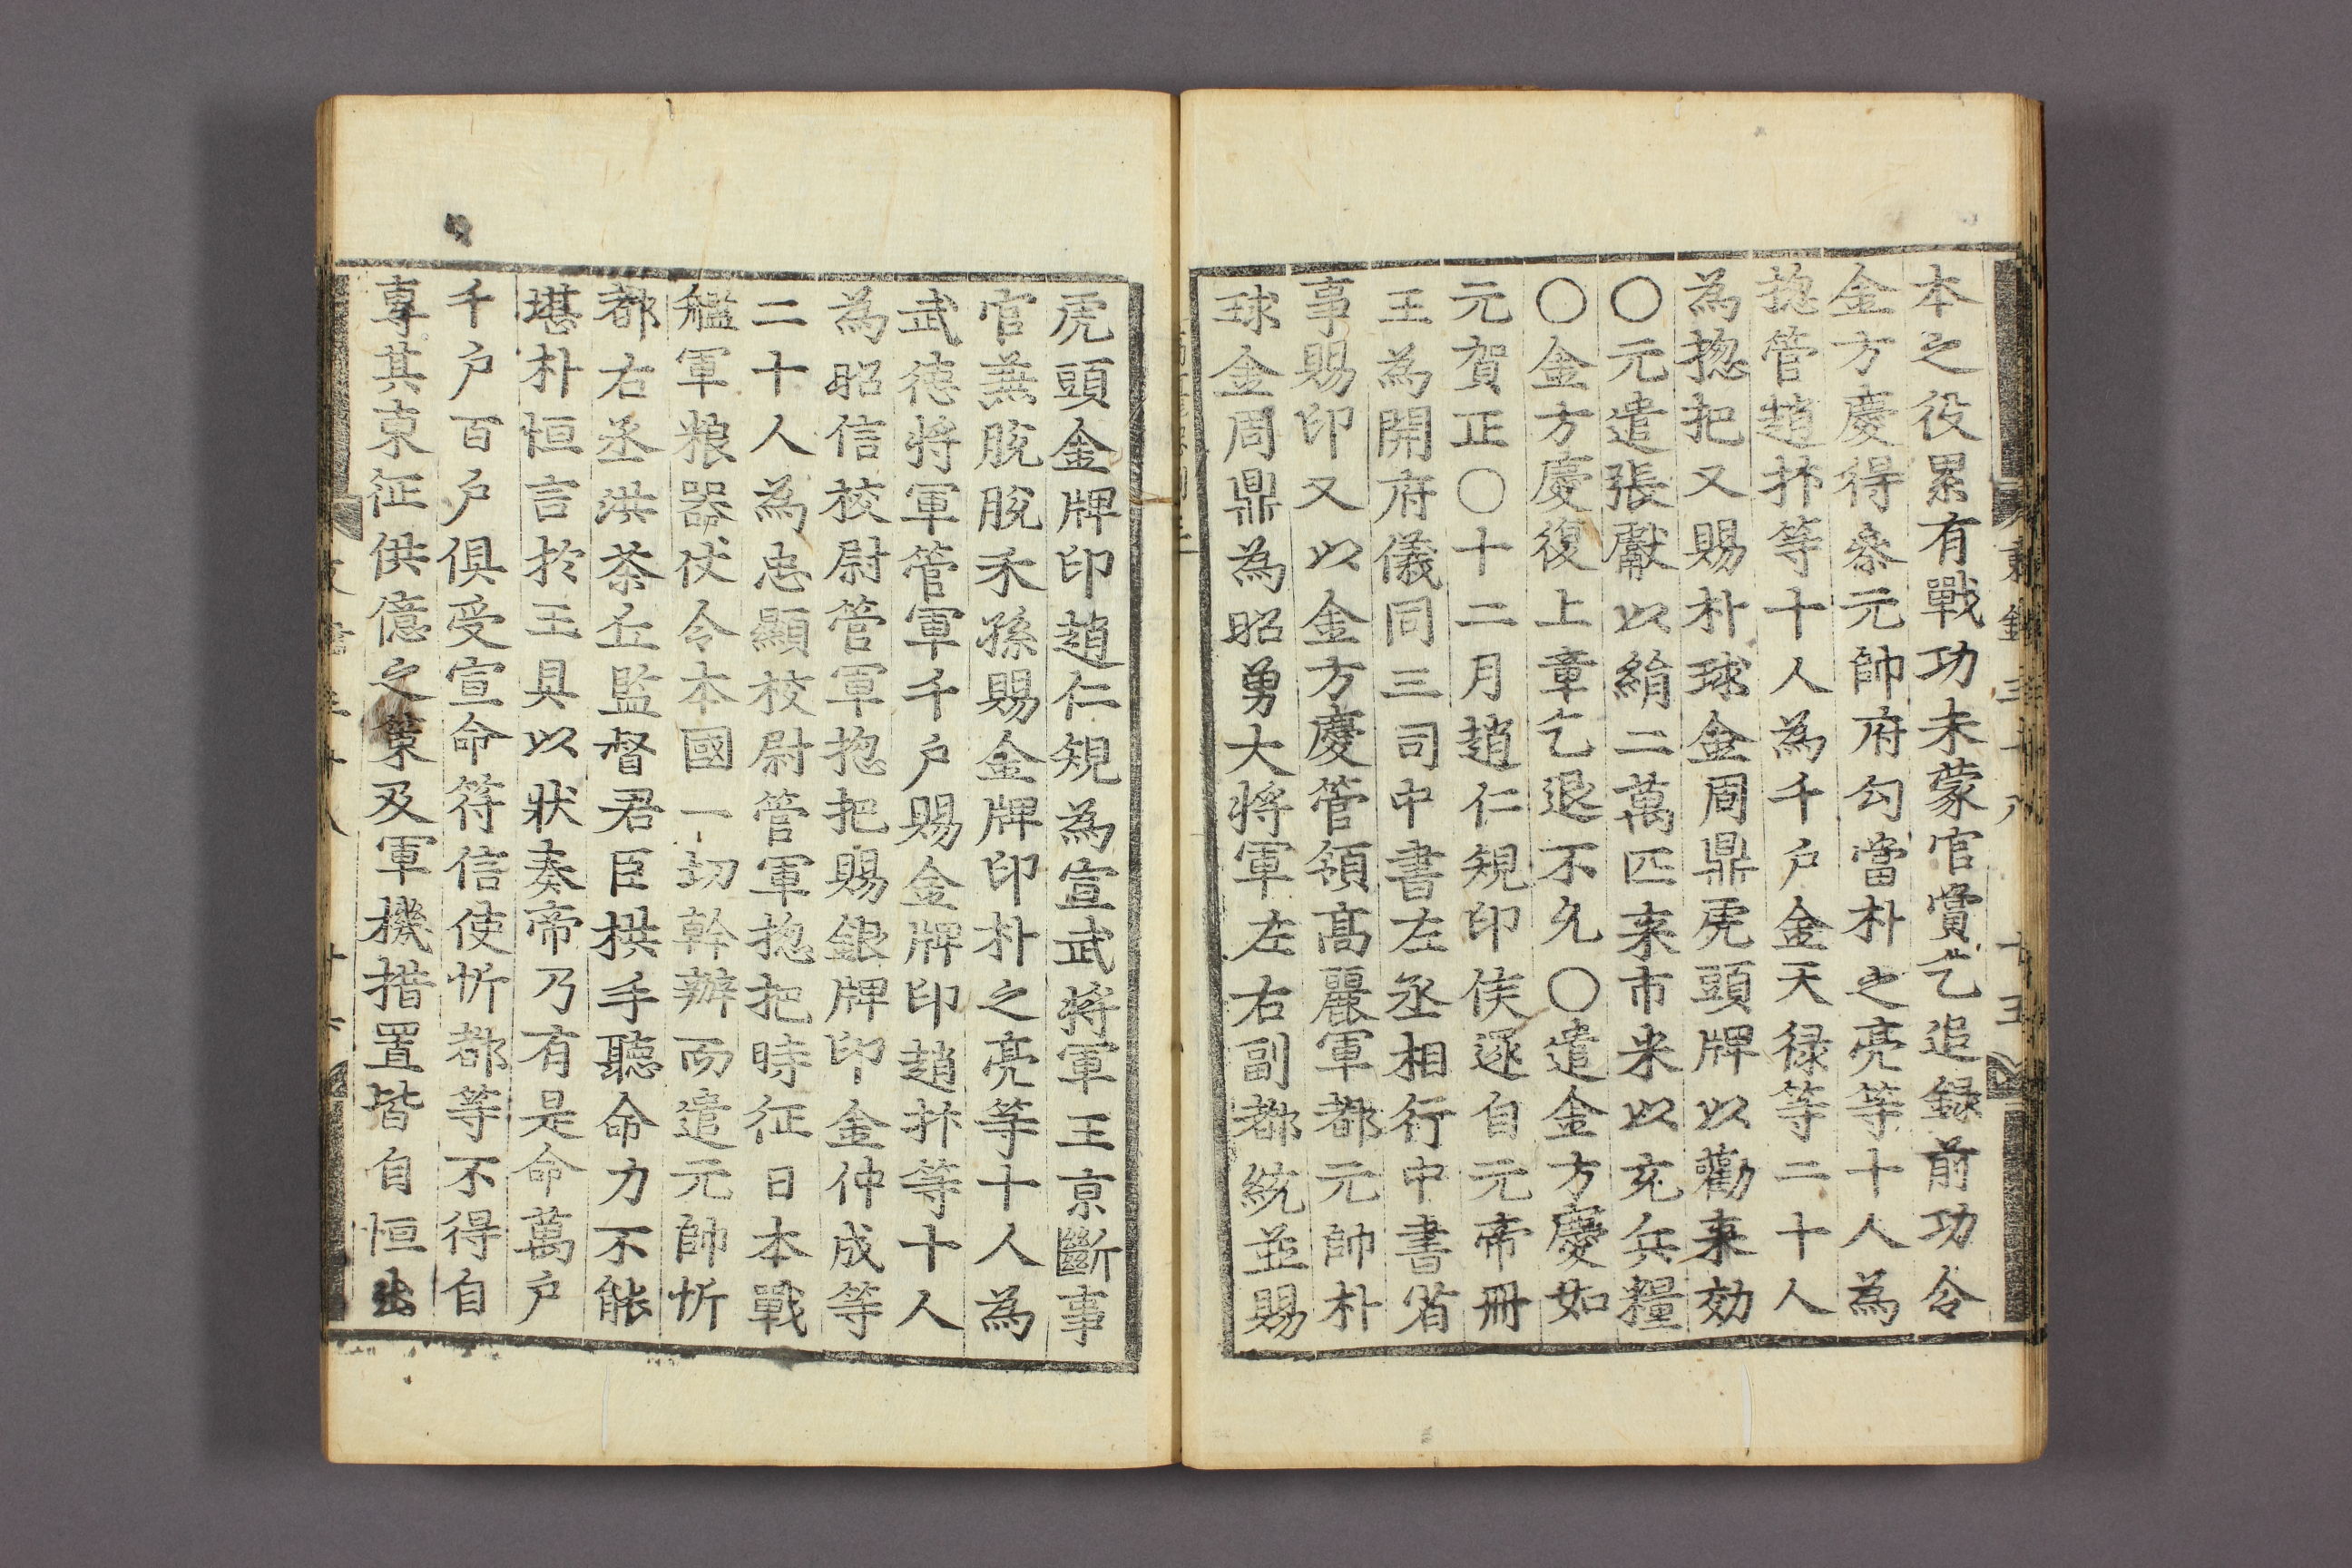 本之役累有戰功未蒙官賞乞追録前功令
金方慶得叅元帥府勾當朴之亮等十人為
揔管趙抃等十人為千户金天禄等二十人
為揔把又賜朴球金周鼎虎頭牌以勸来効
○元遣張獻以絹二萬匹来市米以充兵糧
○金方慶復上章乞退不允○遣金方慶如
元賀正○十二月趙仁規印侯還自元帝冊
王為開府儀同三司中書左丞相行中書省
事賜印又以金方慶管領髙麗軍都元帥朴
球金周鼎為昭勇大將軍左右副都統並賜
虎頭金牌印趙仁規為宣武將軍王京斷事
官兼脫脫禾孫賜金牌印朴之亮等十人為
武德將軍管軍千户賜金牌印趙抃等十人
為昭信校尉管軍揔把賜銀牌印金仲成等
二十人為忠顯校尉管軍揔把時征日本戰
艦軍粮器仗令本國一切幹辦而遣元帥忻
都右丞洪茶丘監督君臣拱手聽命力不能
堪朴恒言於王具以狀奏帝乃有是命萬户
千户百户俱受宣命符信使忻都等不得自
專其東征供億之策及軍機措置皆自恒出